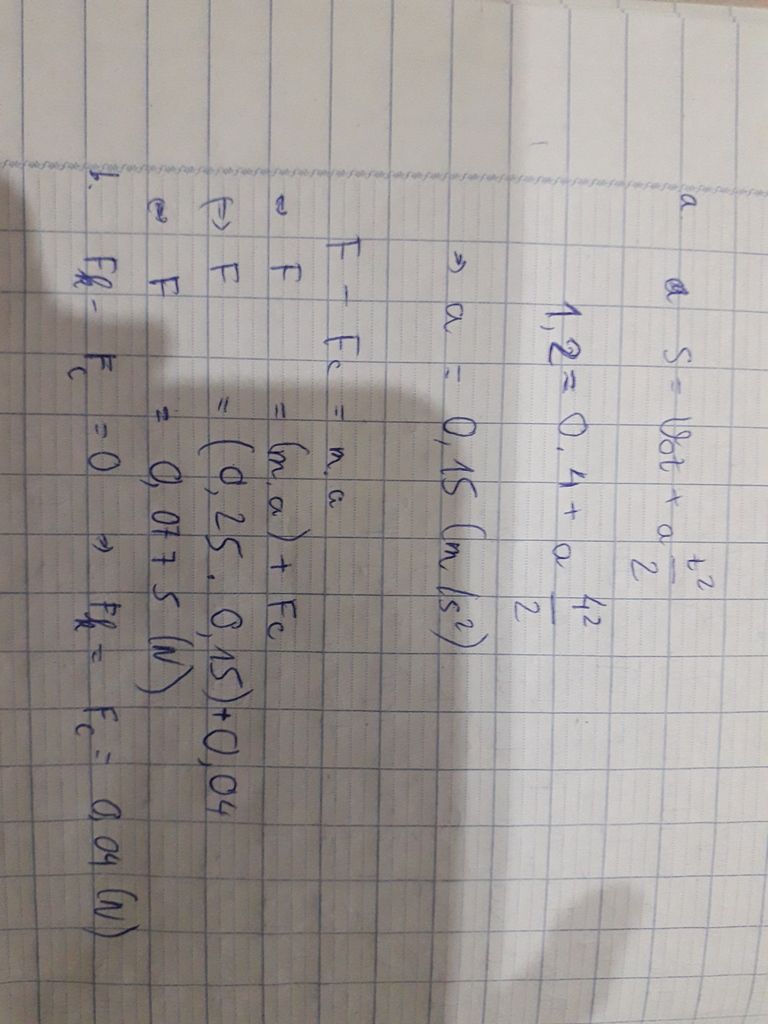 a. a S = V₀t + a t²/2
1,2 = 0.4 + a 4²/2
=> a = 0,15 (m/s²)
F - Fc = m.a
<=> F = (m.a) + Fc
<=> F = (0,25 . 0,15) + 0,04
<=> F = 0,0775 (N)
b. Fk - Fc = 0 => Fk = Fc = 0,04 (N)